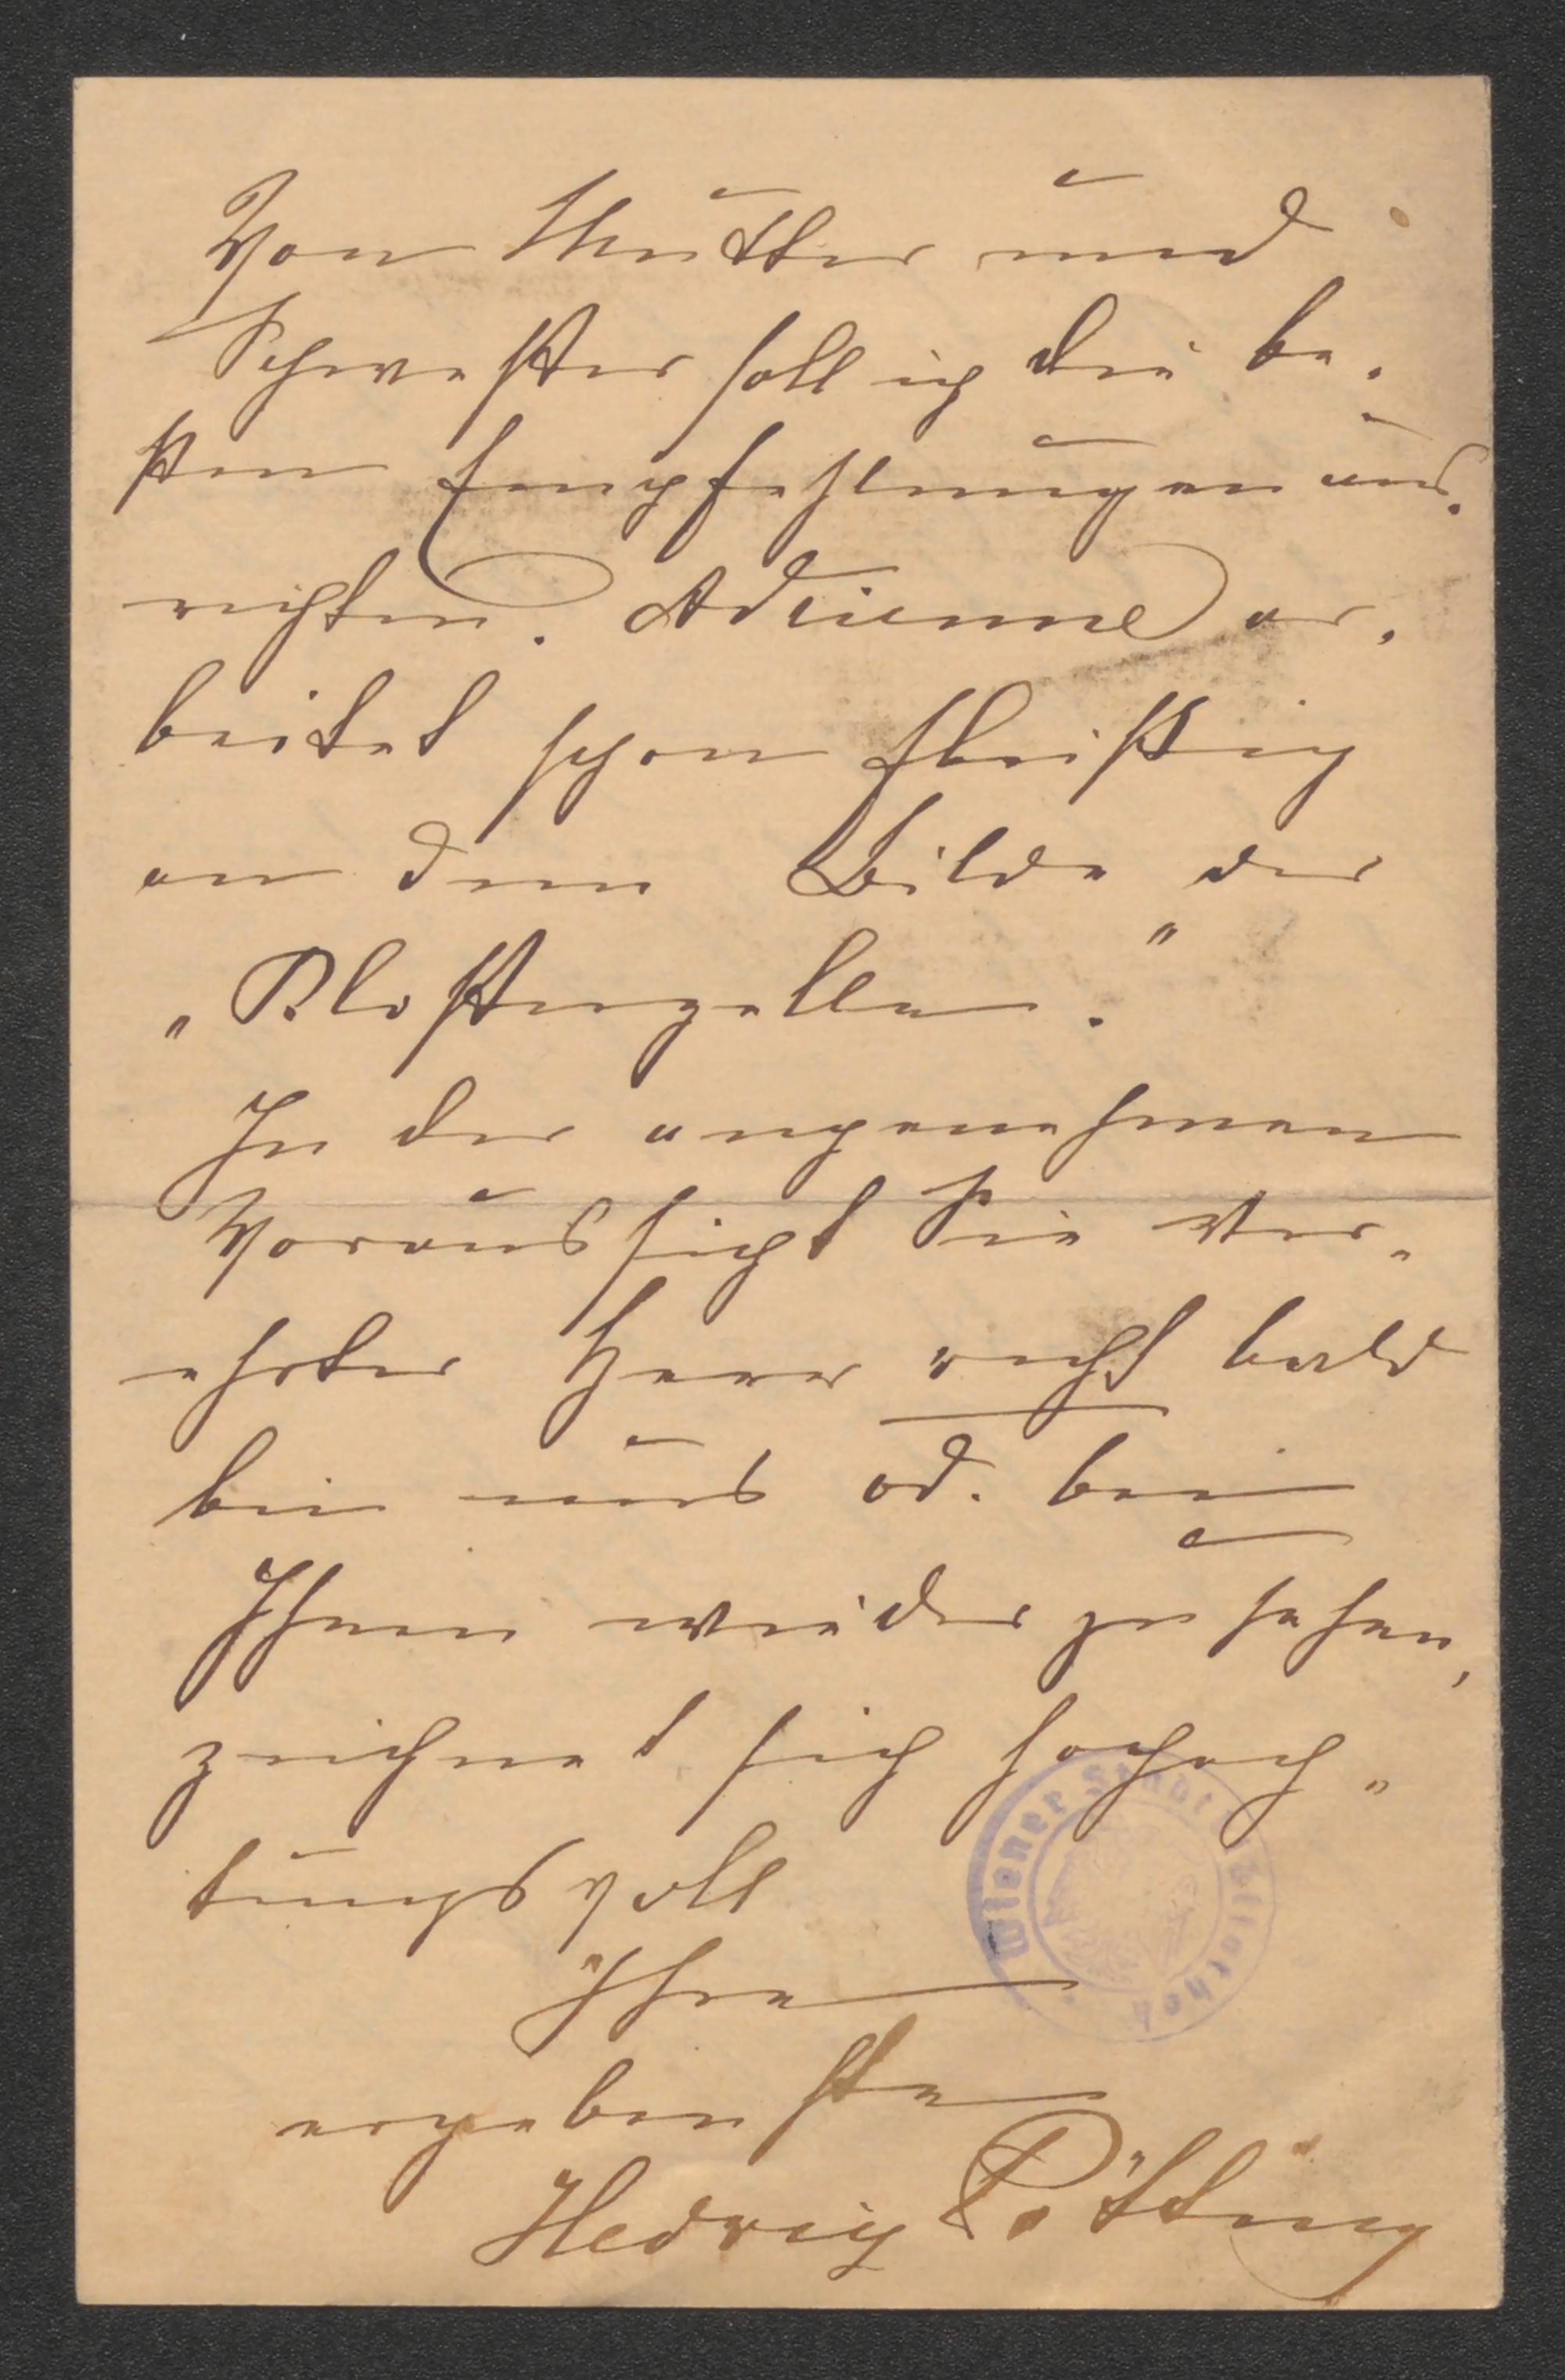 Von Mutter und
Schwester soll ich die be-
sten Empfehlungen aus-
richten. Adrienne ar-
beitet schon fleißig
an dem Bilde der
„Klosterzelle."
In der angenehmen
Voraussicht Sie ver-
ehrter Herr recht bald
bei uns od. bei
Ihnen wieder zu sehen,
zeichnet sich hochach-
tungsvoll
Ihre
ergebenste
Hedwig Pötting
Wiener Stadt-Bibliothek